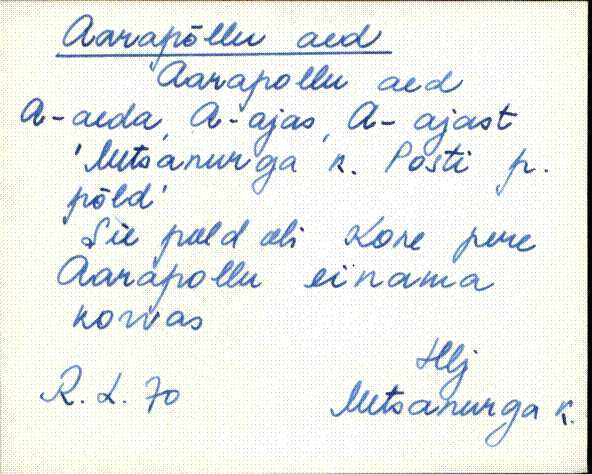 Aarapõllu aed
'Aarapollu aed
A-aeda, A-ajas, A-ajast
'Metsanurga k. Posti p.
põld'
Sie puld oli Kore pere
Aarapollu einama
korvas
Hlj
R. L. 70
Metsanurga k.